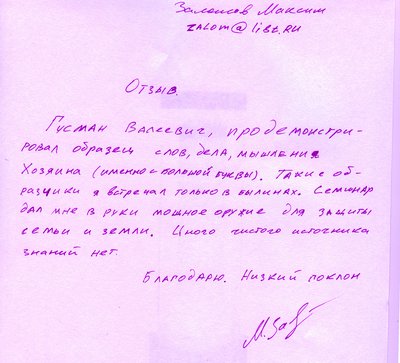 Заломов Максим
ZALOM@LIBZ.RU
Отзыв.
Гусман Валеевич, продемонстри-
ровал образец слов, дела, мышления
Хозяина (именно с большой буквы). Такие об-
разчики я встречал только в былинах. Семинар
дал мне в руки мощное оружие для защиты
семьи и земли. Иного чистого источника
знаний нет.
Благодарю. Низкий поклон